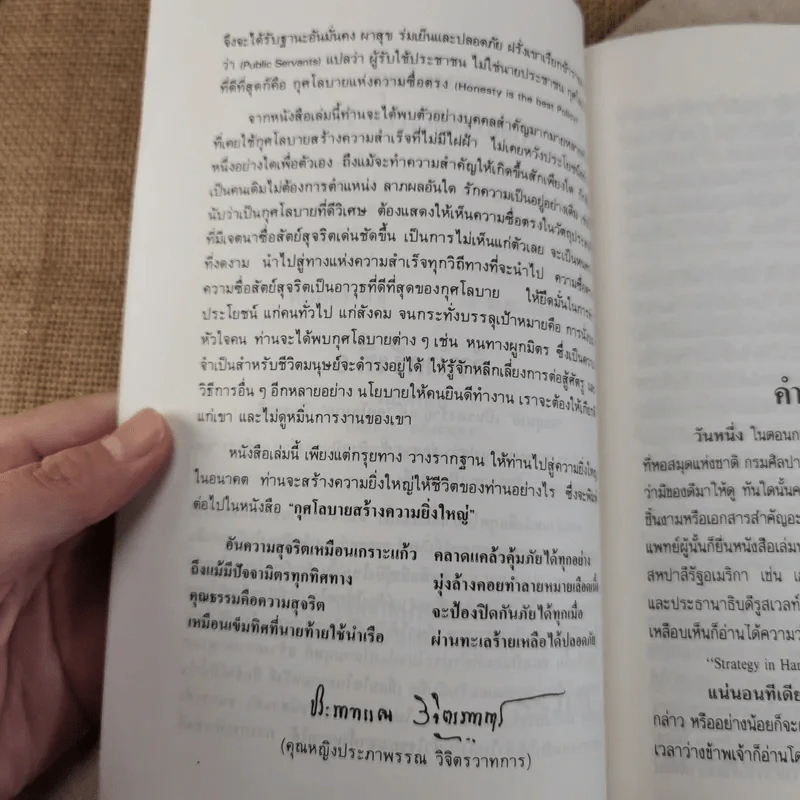 จึงจะได้รับฐานะอันมั่นคง ผาสุข ร่มเย็นและปลอดภัย ฝรั่งเขาเรียกข้าราช
ว่า (Public Servants) แปลว่า ผู้รับใช้ประชาชน ไม่ใช่นายประชาชน
ที่ดีที่สุดก็คือ กุศโลบายแห่งความซื่อตรง (Honesty is the best Policy)
จากหนังสือเล่มนี้ท่านจะได้พบตัวอย่างบุคคลสำคัญมากมายหลาย
ที่เคยใช้กุศโลบายสร้างความสำเร็จที่ไม่มีไฝฝ้า ไม่เคยหวังประโยชน์
หนึ่งอย่างใดเพื่อตัวเอง ถึงแม้จะทำความสำคัญให้เกิดขึ้นสักเพียงใด
เป็นคนเดิมไม่ต้องการตำแหน่ง ลาภผลอันใด รักความเป็นอยู่อย่างเดิม
นับว่าเป็นกุศโลบายที่ดีวิเศษ ต้องแสดงให้เห็นความซื่อตรงในวัตถุประสงค์
ที่มีเจตนาซื่อสัตย์สุจริตเด่นชัดขึ้น เป็นการไม่เห็นแก่ตัวเลย จะเป็นหน
ที่งดงาม นำไปสู่ทางแห่งความสำเร็จทุกวิถีทางที่จะนำไป ความซื่อ
ความซื่อสัตย์สุจริตเป็นอาวุธที่ดีที่สุดของกุศโลบาย ให้ยึดมั่นในการ
ประโยชน์ แก่คนทั่วไป แก่สังคม จนกระทั่งบรรลุเป้าหมายคือ การ
หัวใจคน ท่านจะได้พบกุศโลบายต่าง ๆ เช่น หนทางผูกมิตร ซึ่งเป็นความ
จำเป็นสำหรับชีวิตมนุษย์จะดำรงอยู่ได้ ให้รู้จักหลีกเลี่ยงการต่อสู้ศัตรู และ
วิธีการอื่น ๆ อีกหลายอย่าง นโยบายให้คนยินดีทำงาน เราจะต้องให้เกียรติ
แก่เขา และไม่ดูหมิ่นการงานของเขา
หนังสือเล่มนี้ เพียงแต่กรุยทาง วางรากฐาน ให้ท่านไปสู่ความยิ่งใหญ่
ในอนาคต ท่านจะสร้างความยิ่งใหญ่ให้ชีวิตของท่านอย่างไร ซึ่งจะพิมพ์
ต่อไปในหนังสือ "กุศโลบายสร้างความยิ่งใหญ่"
อันความสุจริตเหมือนเกราะแก้ว คลาดแคล้วคุ้มภัยได้ทุกอย่าง
ถึงแม้มีปัจจามิตรทุกทิศทาง มุ่งล้างคอยทำลายหมายเลือดเนื้อ
คุณธรรมคือความสุจริต จะป้องปิดกันภัยได้ทุกเมื่อ
เหมือนเข็มทิศที่นายท้ายใช้นำเรือ ผ่านทะเลร้ายเหลือได้ปลอดภัย
ประภาพรรณ วิจิตรวาทการ
(คุณหญิงประภาพรรณ วิจิตรวาทการ)
คำ
วันหนึ่ง ในตอนก
ที่หอสมุดแห่งชาติ กรมศิลปา
ว่ามีของดีมาให้ดู ทันใดนั้นค
ชิ้นงามหรือเอกสารสำคัญอะ
แพทย์ผู้นั้นก็ยื่นหนังสือเล่มห
สหปาลีรัฐอเมริกา เช่น
และประธานาธิบดีรูสเวลท์
เหลือบเห็นก็อ่านได้ความว
"Strategy in Han
แน่นอนทีเดีย
กล่าว หรืออย่างน้อยก็จะ
เวลาว่างข้าพเจ้าก็อ่านโด